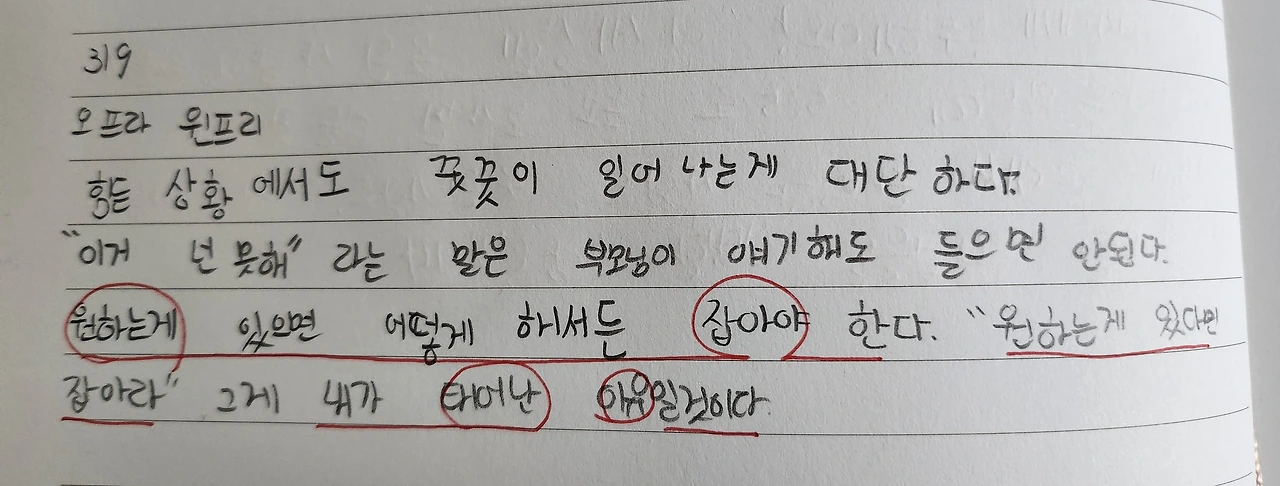 319
오프라 윈프리
힘든 상황에서도 꿋꿋이 일어나는게 대단하다.
"이거 넌 못해" 라는 말은 부모님이 얘기해도 들으면 안된다.
원하는게 있으면 어떻게 해서든 잡아야 한다. "원하는게 있다면
잡아라" 그게 내가 태어난 이유일것이다.